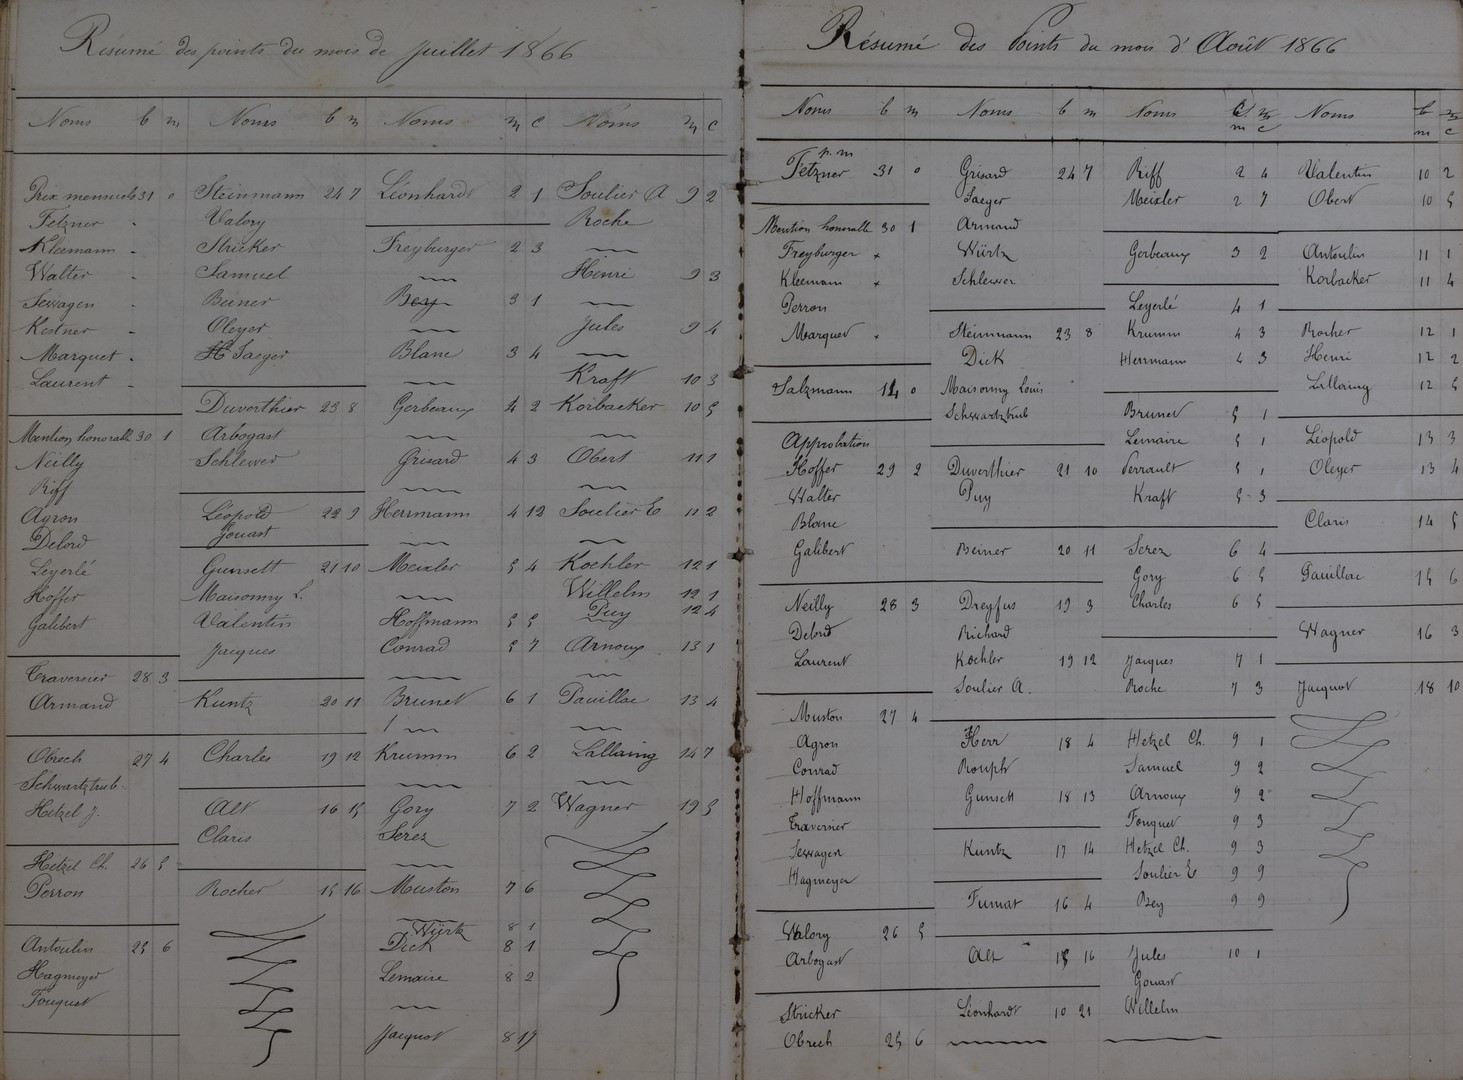 Résumé des points du mois de Juillet 1866
Noms b m
Prix mensuels 31 0
Fetzner
Kleemann
Walter
Sewagen
Kestner
Marquet
Laurent
Mention honorable 30 1
Neilly
Riff
Agron
Delord
Leyerlé
Hoffer
Galibert
Traversier 28 3
Armand
Obrech 27 4
Schwartztrub
Hetzel J.
Hetzel Ch. 26 5
Perron
Antoulin 25 6
Hagmeyer
Fouquet
Noms b m
Steinmann 24 7
Valory
Stricker
Samuel
Beiner
Oleyer
Jaeger
Duverthier 23 8
Arbogast
Schlewer
Léopold 22 9
Gouast
Gunsett 21 10
Maisonny L.
Valentin
Jacques
Kuntz 20 11
Charles 19 12
Alt 16 15
Claris
Rocher 15 16
Noms m c
Léonhardt 2 1
Freyburger 2 3
Bey 3 1
Blanc 3 4
Gerbeaux 4 2
Grisard 4 3
Herrmann 4 12
Meixler 5 4
Hoffmann 5 5
Conrad 5 7
Brunet 6 1
Krumm 6 2
Gory 7 2
Serez
Muston 7 6
Würtz 8 1
Dick 8 1
Lemaire 8 2
Jacquot 8 17
Noms m c
Soulier A 9 2
Roche
Henri 9 3
Jules 9 4
Kraft 10 3
Korbacker 10 5
Obert 11 1
Soulier E 11 2
Kochler 12 1
Willelm 12 1
Puy 12 4
Arnoux 13 1
Pauillac 13 4
Lallaing 14 7
Wagner 19 5
Résumé des Points du mois d'Août 1866
Noms b m
p. m
Fetzner 31 0
Mention honorable 30 1
Freyburger
Kleemann
Perron
Marquet
Salzmann 14 0
Approbation
Hoffer 29 2
Walter
Blanc
Galibert
Neilly 28 3
Delord
Laurent
Muston 27 4
Agron
Conrad
Hoffmann
Traversier
Sewagen
Hagmeyer
Valory 26 5
Arbogast
Stricker
Obrech 25 6
Noms b m
Grisard 24 7
Jaeger
Armand
Würtz
Schlewer
Steinmann 23 8
Dick
Maisonny Louis
Schwartztrub
Duverthier 21 10
Puy
Beiner 20 11
Dreyfus 19 3
Richard
Kochler 19 12
Soulier A.
Herr 18 4
Rouph
Gunsett 18 13
Kuntz 17 14
Fumat 16 4
Alt 15 16
Léonhardt 10 21
Noms b. m m c
Riff 2 4
Meixler 2 7
Gerbeaux 3 2
Leyerlé 4 1
Krumm 4 3
Herrmann 4 3
Brunet 5 1
Lemaire 5 1
Perrault 5 1
Kraft 5 3
Serez 6 4
Gory 6 5
Charles 6 5
Jacques 7 1
Roche 7 3
Hetzel Ch. 9 1
Samuel 9 2
Arnoux 9 2
Fouquet 9 3
Hetzel Ch. 9 3
Soulier E 9 9
Bey 9 9
Jules 10 1
Gouast
Willelm
Noms b m m c
Valentin 10 2
Obert 10 5
Antoulin 11 1
Korbacker 11 4
Rocher 12 1
Henri 12 2
Lallaing 12 5
Léopold 13 3
Oleyer 13 4
Claris 14 5
Pauillac 15 6
Wagner 16 3
Jacquot 18 10